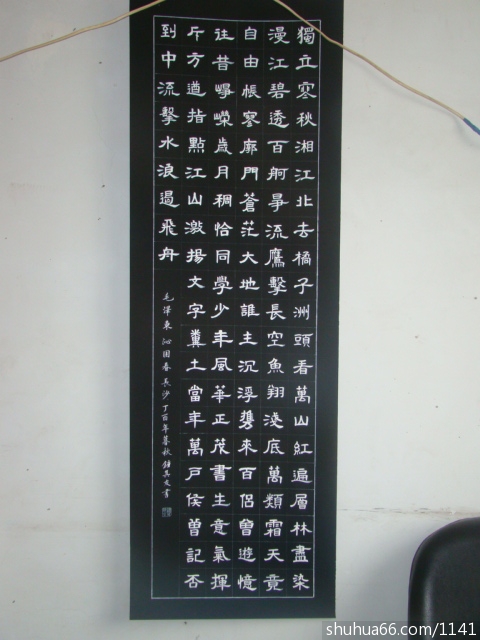 獨立寒秋湘江北去橘子洲頭看萬山紅遍層林盡染
漫江碧透百舸爭流鷹擊長空魚翔淺底萬類霜天竟
自由帳寥廓門蒼茫大地誰主沉浮攜來百侶曾遊憶
往昔崢嶸歲月稠恰同學少年風華正茂書生意氣揮
斥方遒指點江山激揚文字糞土當年萬戶侯曾記否
到中流擊水浪遏飛舟
毛澤東沁园春長沙丁酉年暮秋書
shuhua66.com/1141